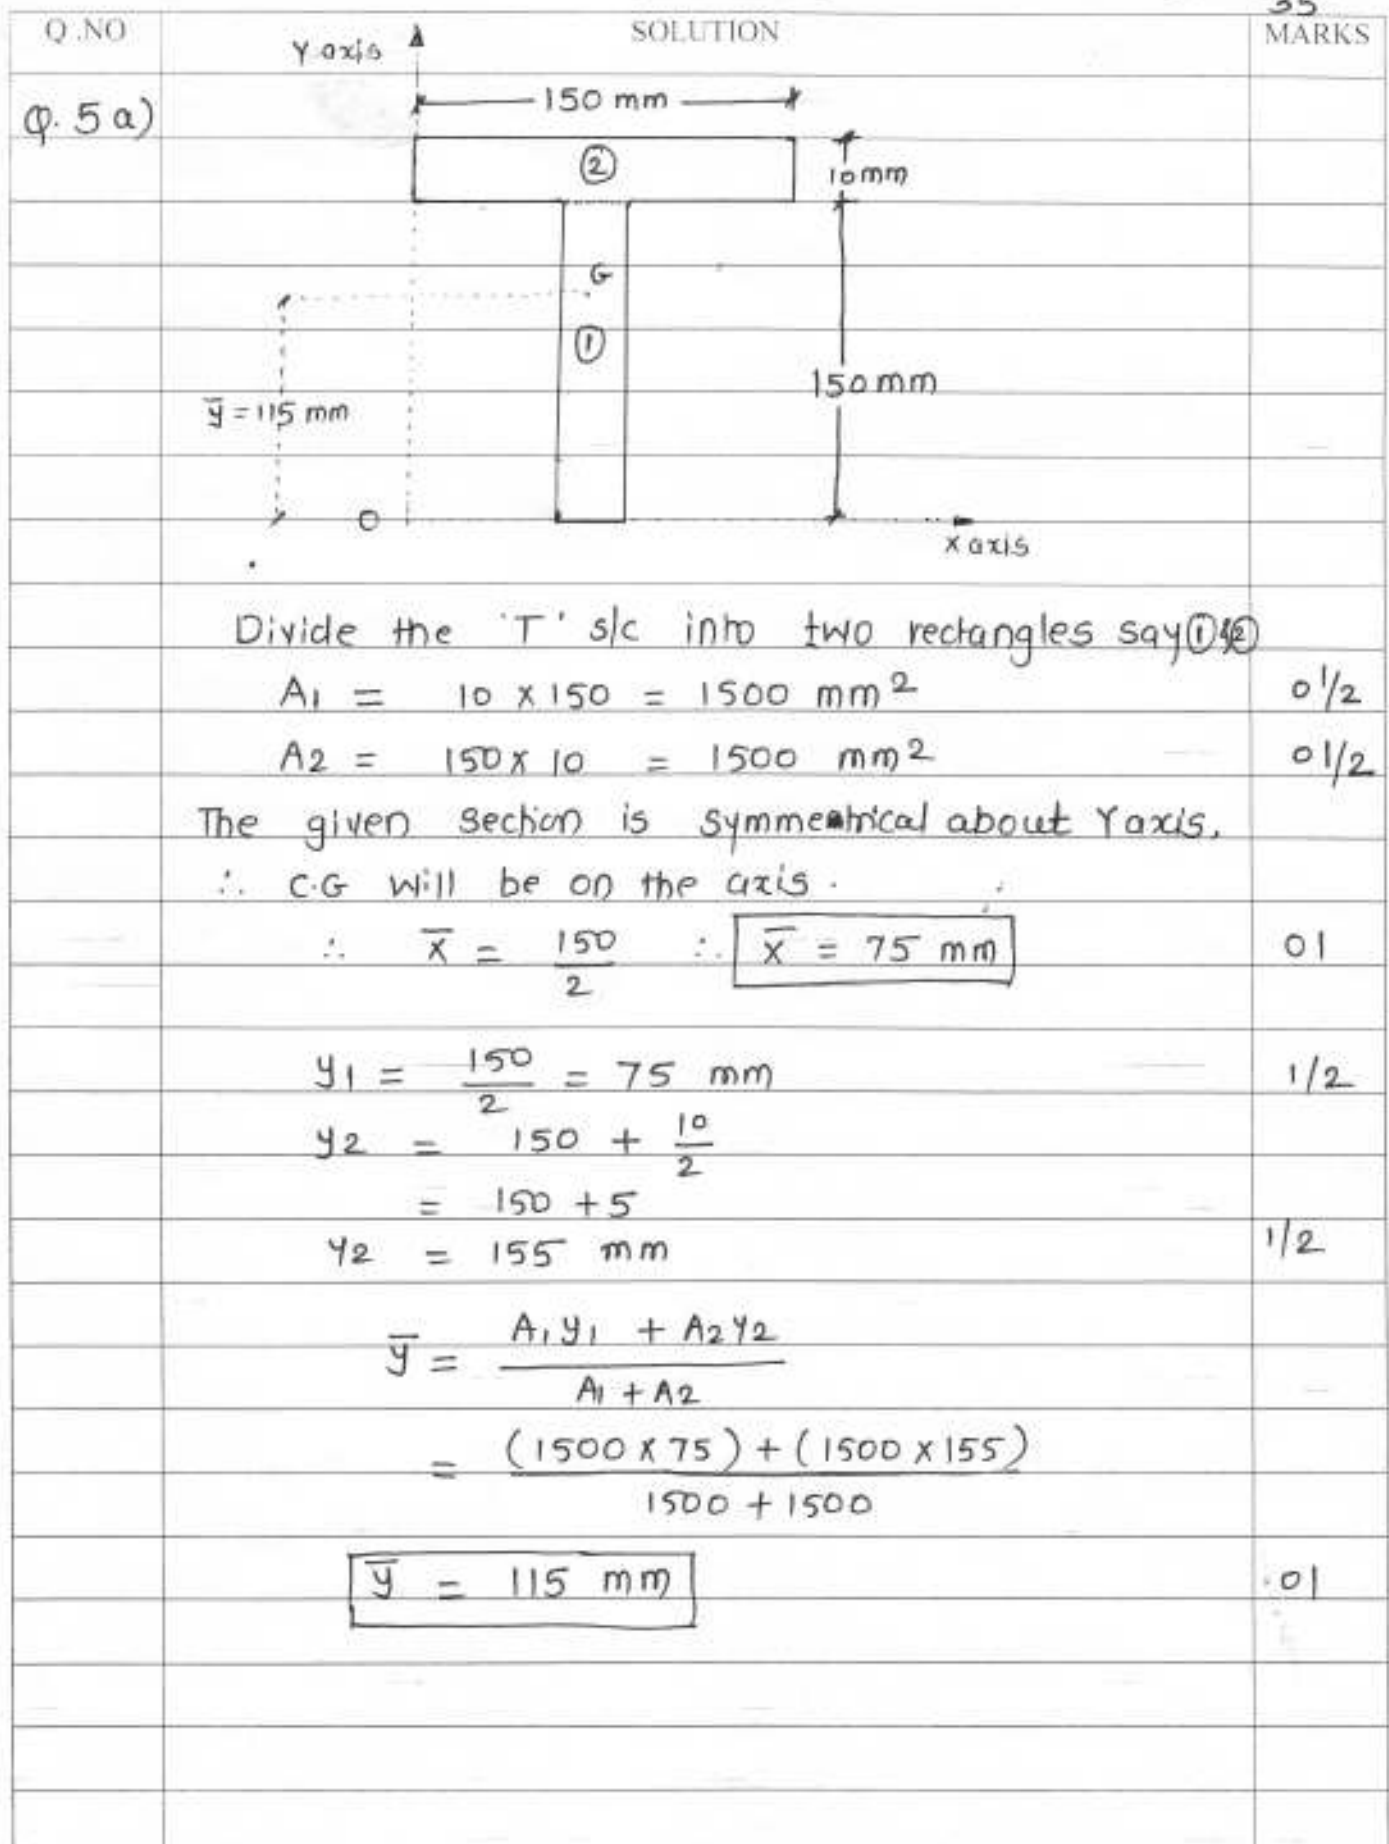 Q.NO SOLUTION MARKS
Y axis
150 mm
Q. 5 a)
②
10mm
G
①
150 mm
y̅ = 115 mm
O
x axis
Divide the 'T' s/c into two rectangles say ① & ②
A1 = 10 x 150 = 1500 mm2 0 1/2
A2 = 150 x 10 = 1500 mm2 0 1/2
The given section is symmetrical about Y axis.
∴ C.G will be on the axis.
∴ x̅ = 150/2 ∴ x̅ = 75 mm 01
y1 = 150/2 = 75 mm 1/2
y2 = 150 + 10/2
= 150 + 5
y2 = 155 mm 1/2
y̅ = A1 y1 + A2 y2 / A1 + A2
= (1500 x 75) + (1500 x 155) / 1500 + 1500
y̅ = 115 mm 01